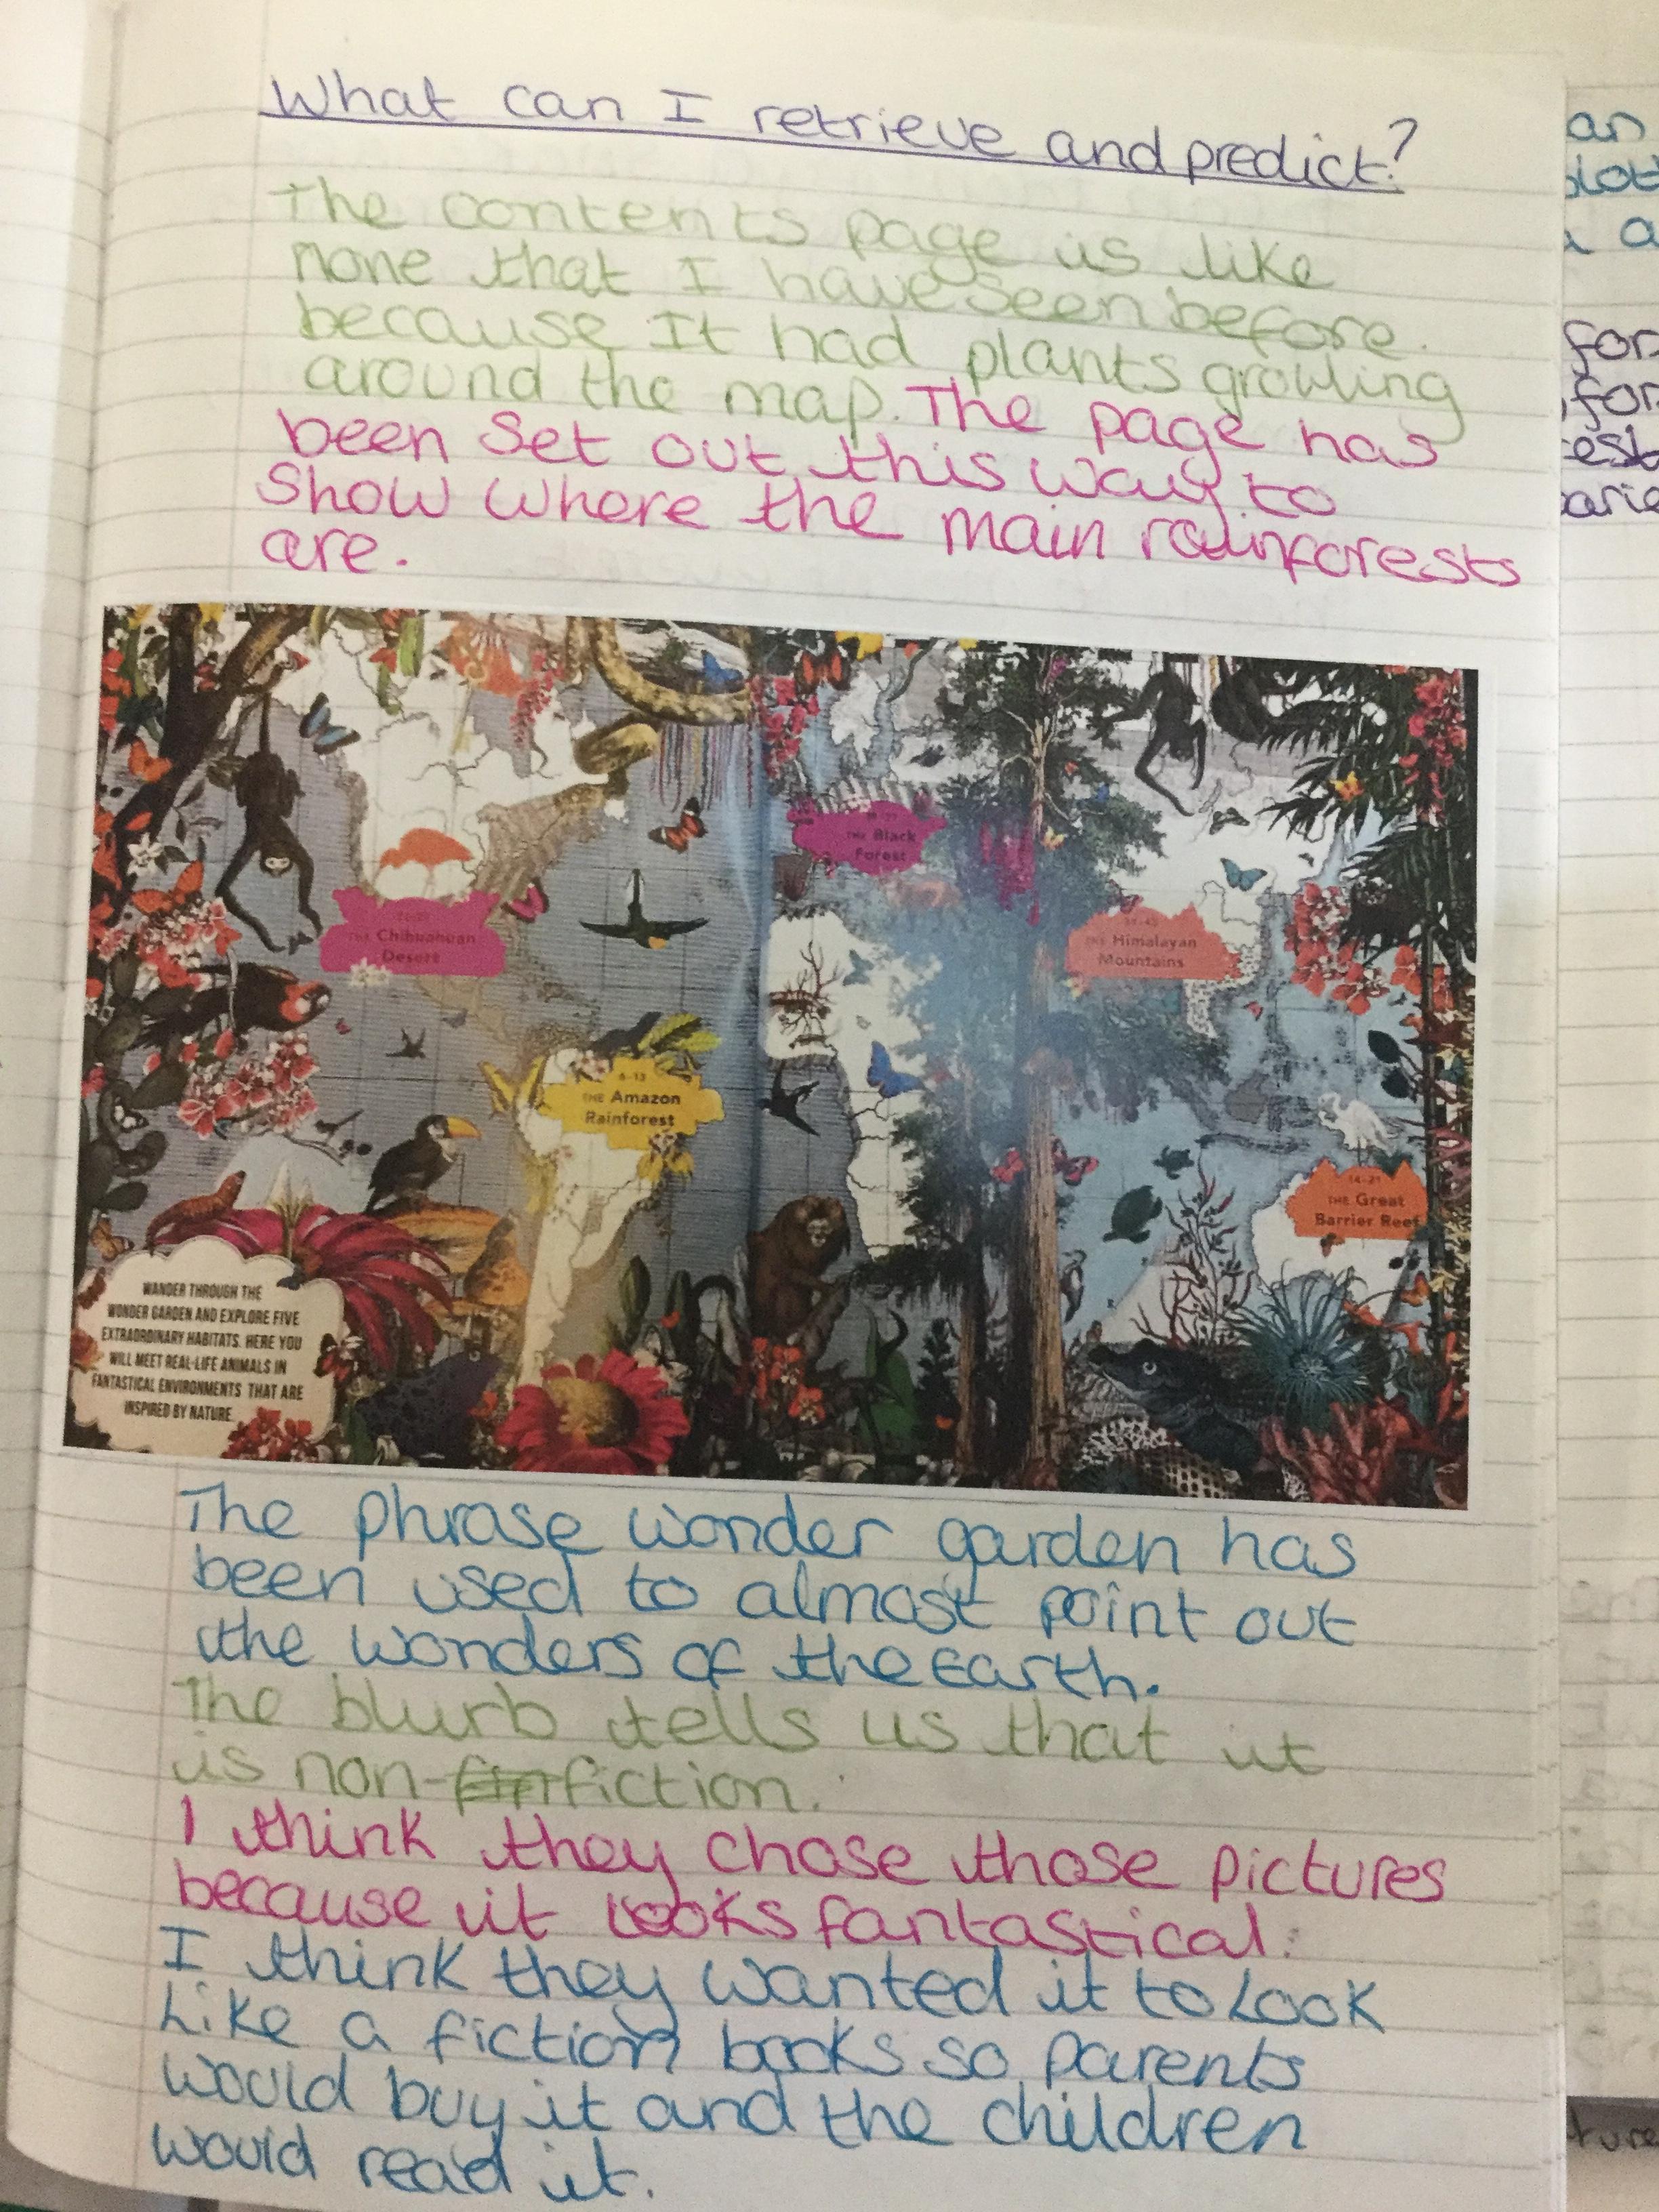 What can I retrieve and predict?
The contents page is like
none that I have seen before
because It had plants growing
around the map. The page has
been set out this way to
Show where the main rainforests
are.
THE Black
Forest
THE Chihuahuan
Desert
THE Himalayan
Mountains
6-13
THE Amazon
Rainforest
14-21
THE Great
Barrier Reef
WANDER THROUGH THE
WONDER GARDEN AND EXPLORE FIVE
EXTRAORDINARY HABITATS. HERE YOU
WILL MEET REAL-LIFE ANIMALS IN
FANTASTICAL ENVIRONMENTS THAT ARE
INSPIRED BY NATURE.
The phrase wonder garden has
been used to almost point out
the wonders of the Earth.
The blurb tells us that it
is non-fiction.
I think they chose those pictures
because it looks fantastical.
I think they wanted it to Look
Like a fiction books so parents
would buy it and the children
would read it.
an
a
for
for